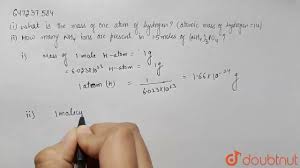 647237584
(i) what is the mass of one atom of hydrogen? (atomic mass of hydrogen = 1u)
(ii) How many NH4 ions are present in 1.5 moles of (NH4)3PO4?
i) Mass of 1 mole H-atom = 1 g
= 6.023×10²³ H-atom = 1 g
1 atom (H) = 1 / 6.023×10²³ = 1.66×10⁻²⁴ g
ii)
doubtnut